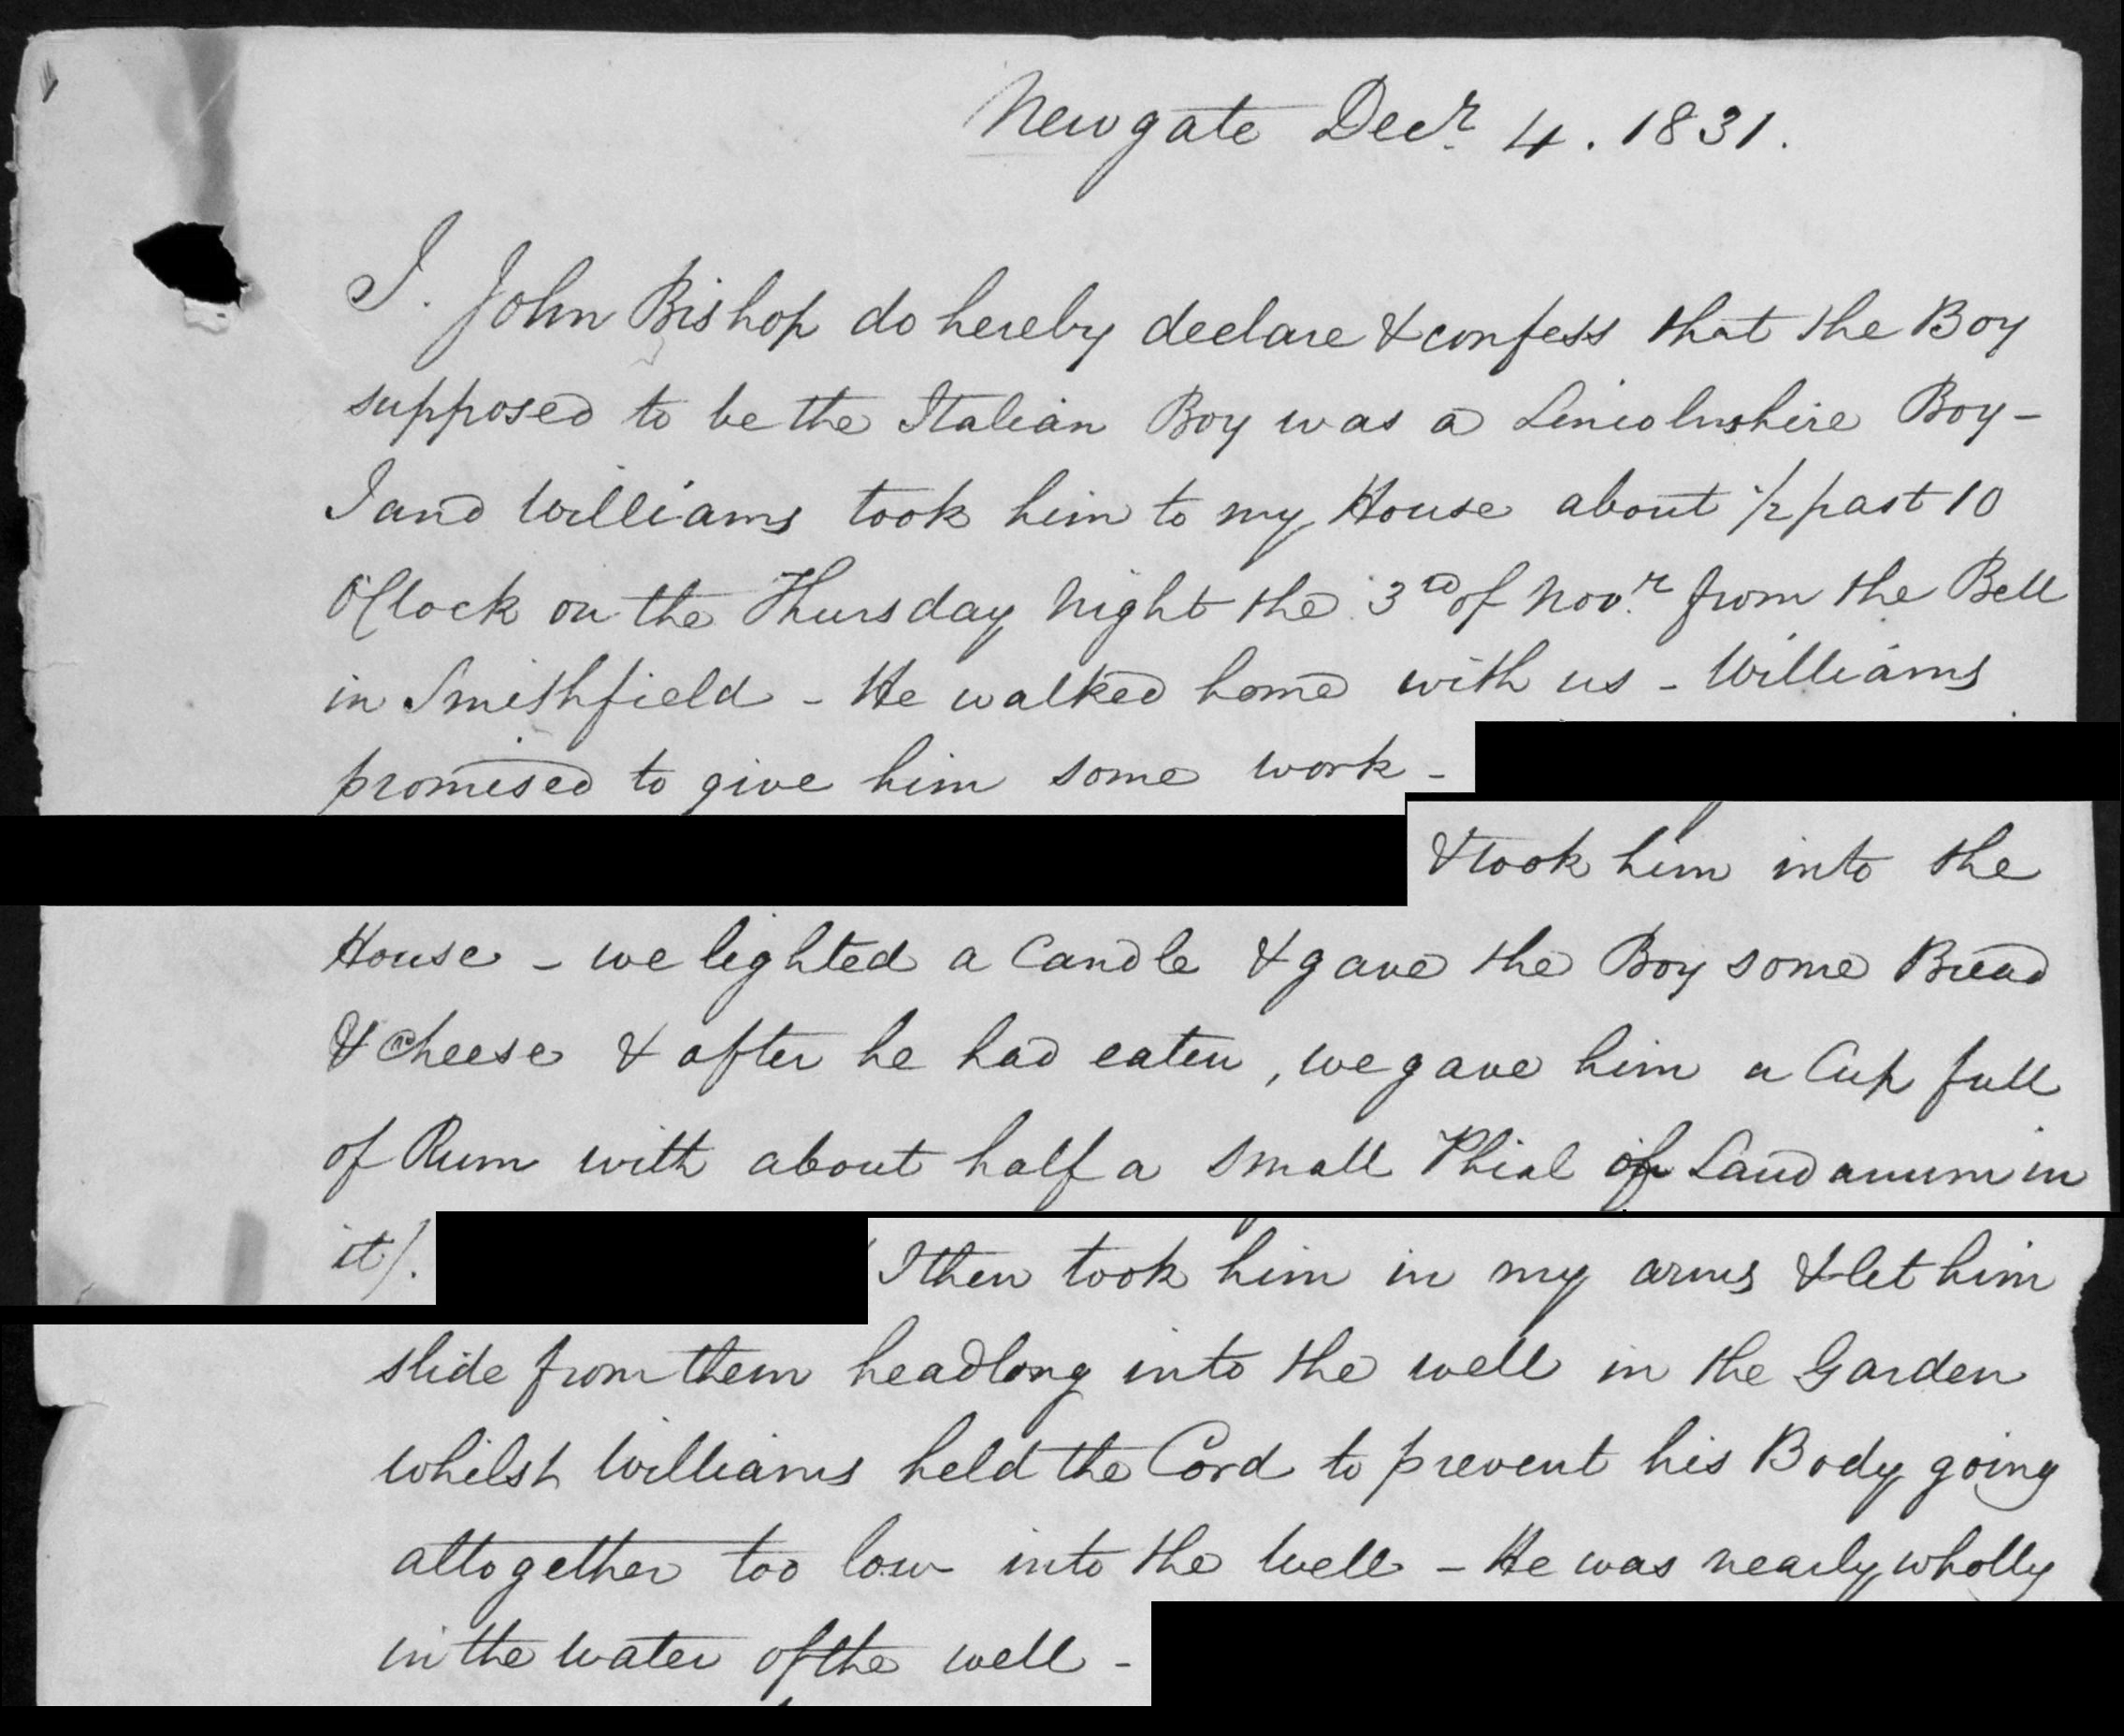 Newgate Decr. 4. 1831.
I. John Bishop do hereby declare & confess that the Boy
supposed to be the Italian Boy was a Lincolnshire Boy -
I and Williams took him to my House about 1/2 past 10
O'Clock on the Thursday Night the 3rd of Novr. from the Bell
in Smithfield - He walked home with us - Williams
promised to give him some work -
& took him into the
House - we lighted a Candle & gave the Boy some Bread
& Cheese & after he had eaten, we gave him a Cup full
of Rum with about half a small Phial of Laudanum in
it/.
I then took him in my arms & let him
slide from them headlong into the well in the Garden
whilst Williams held the Cord to prevent his Body going
altogether too low into the Well - He was nearly wholly
in the water of the well -